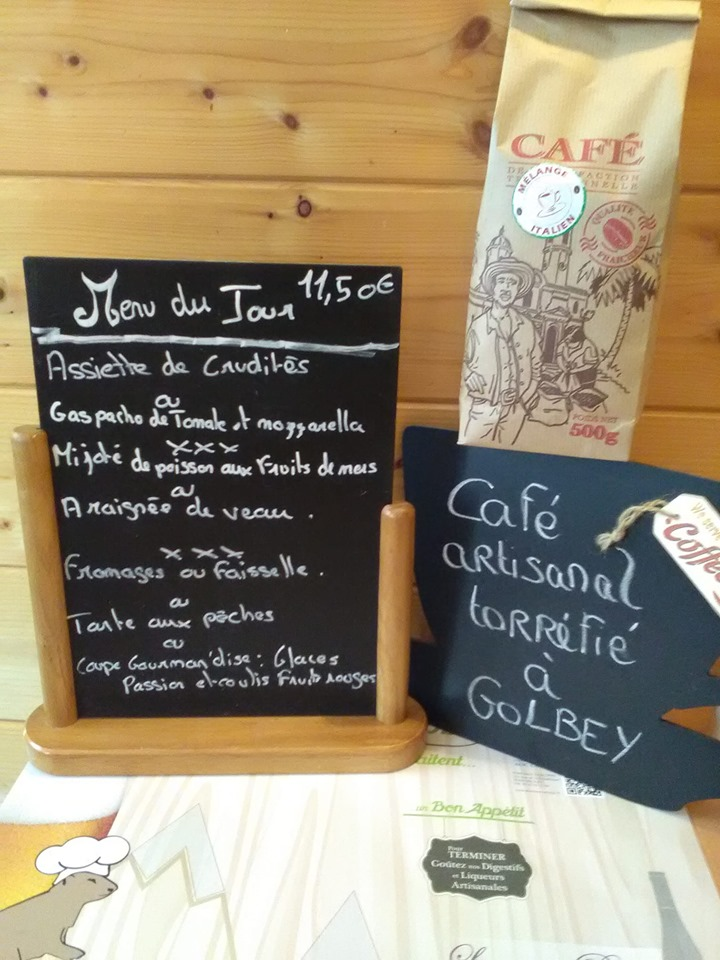 Menu du Jour 11,50€
Assiette de Crudités
ou
Gaspacho de Tomate et mozzanella
x x x
Mijoté de poisson aux Fruits de mers
ou
Araignée de veau.
x x x
Fromages ou Faisselle.
ou
Tarte aux pêches
ou
Coupe Gourman'dise : Glaces
Passion et coulis Fruits rouges
CAFÉ
MÉLANGE
ITALIEN
QUALITÉ
FRAÎCHEUR
POIDS NET
500g
Café
artisanal
torréfié
à
GOLBEY
We serve
Coffee
aitent...
un Bon Appétit
Pour
TERMINER
Goûtez nos Digestifs
et Liqueurs
Artisanales